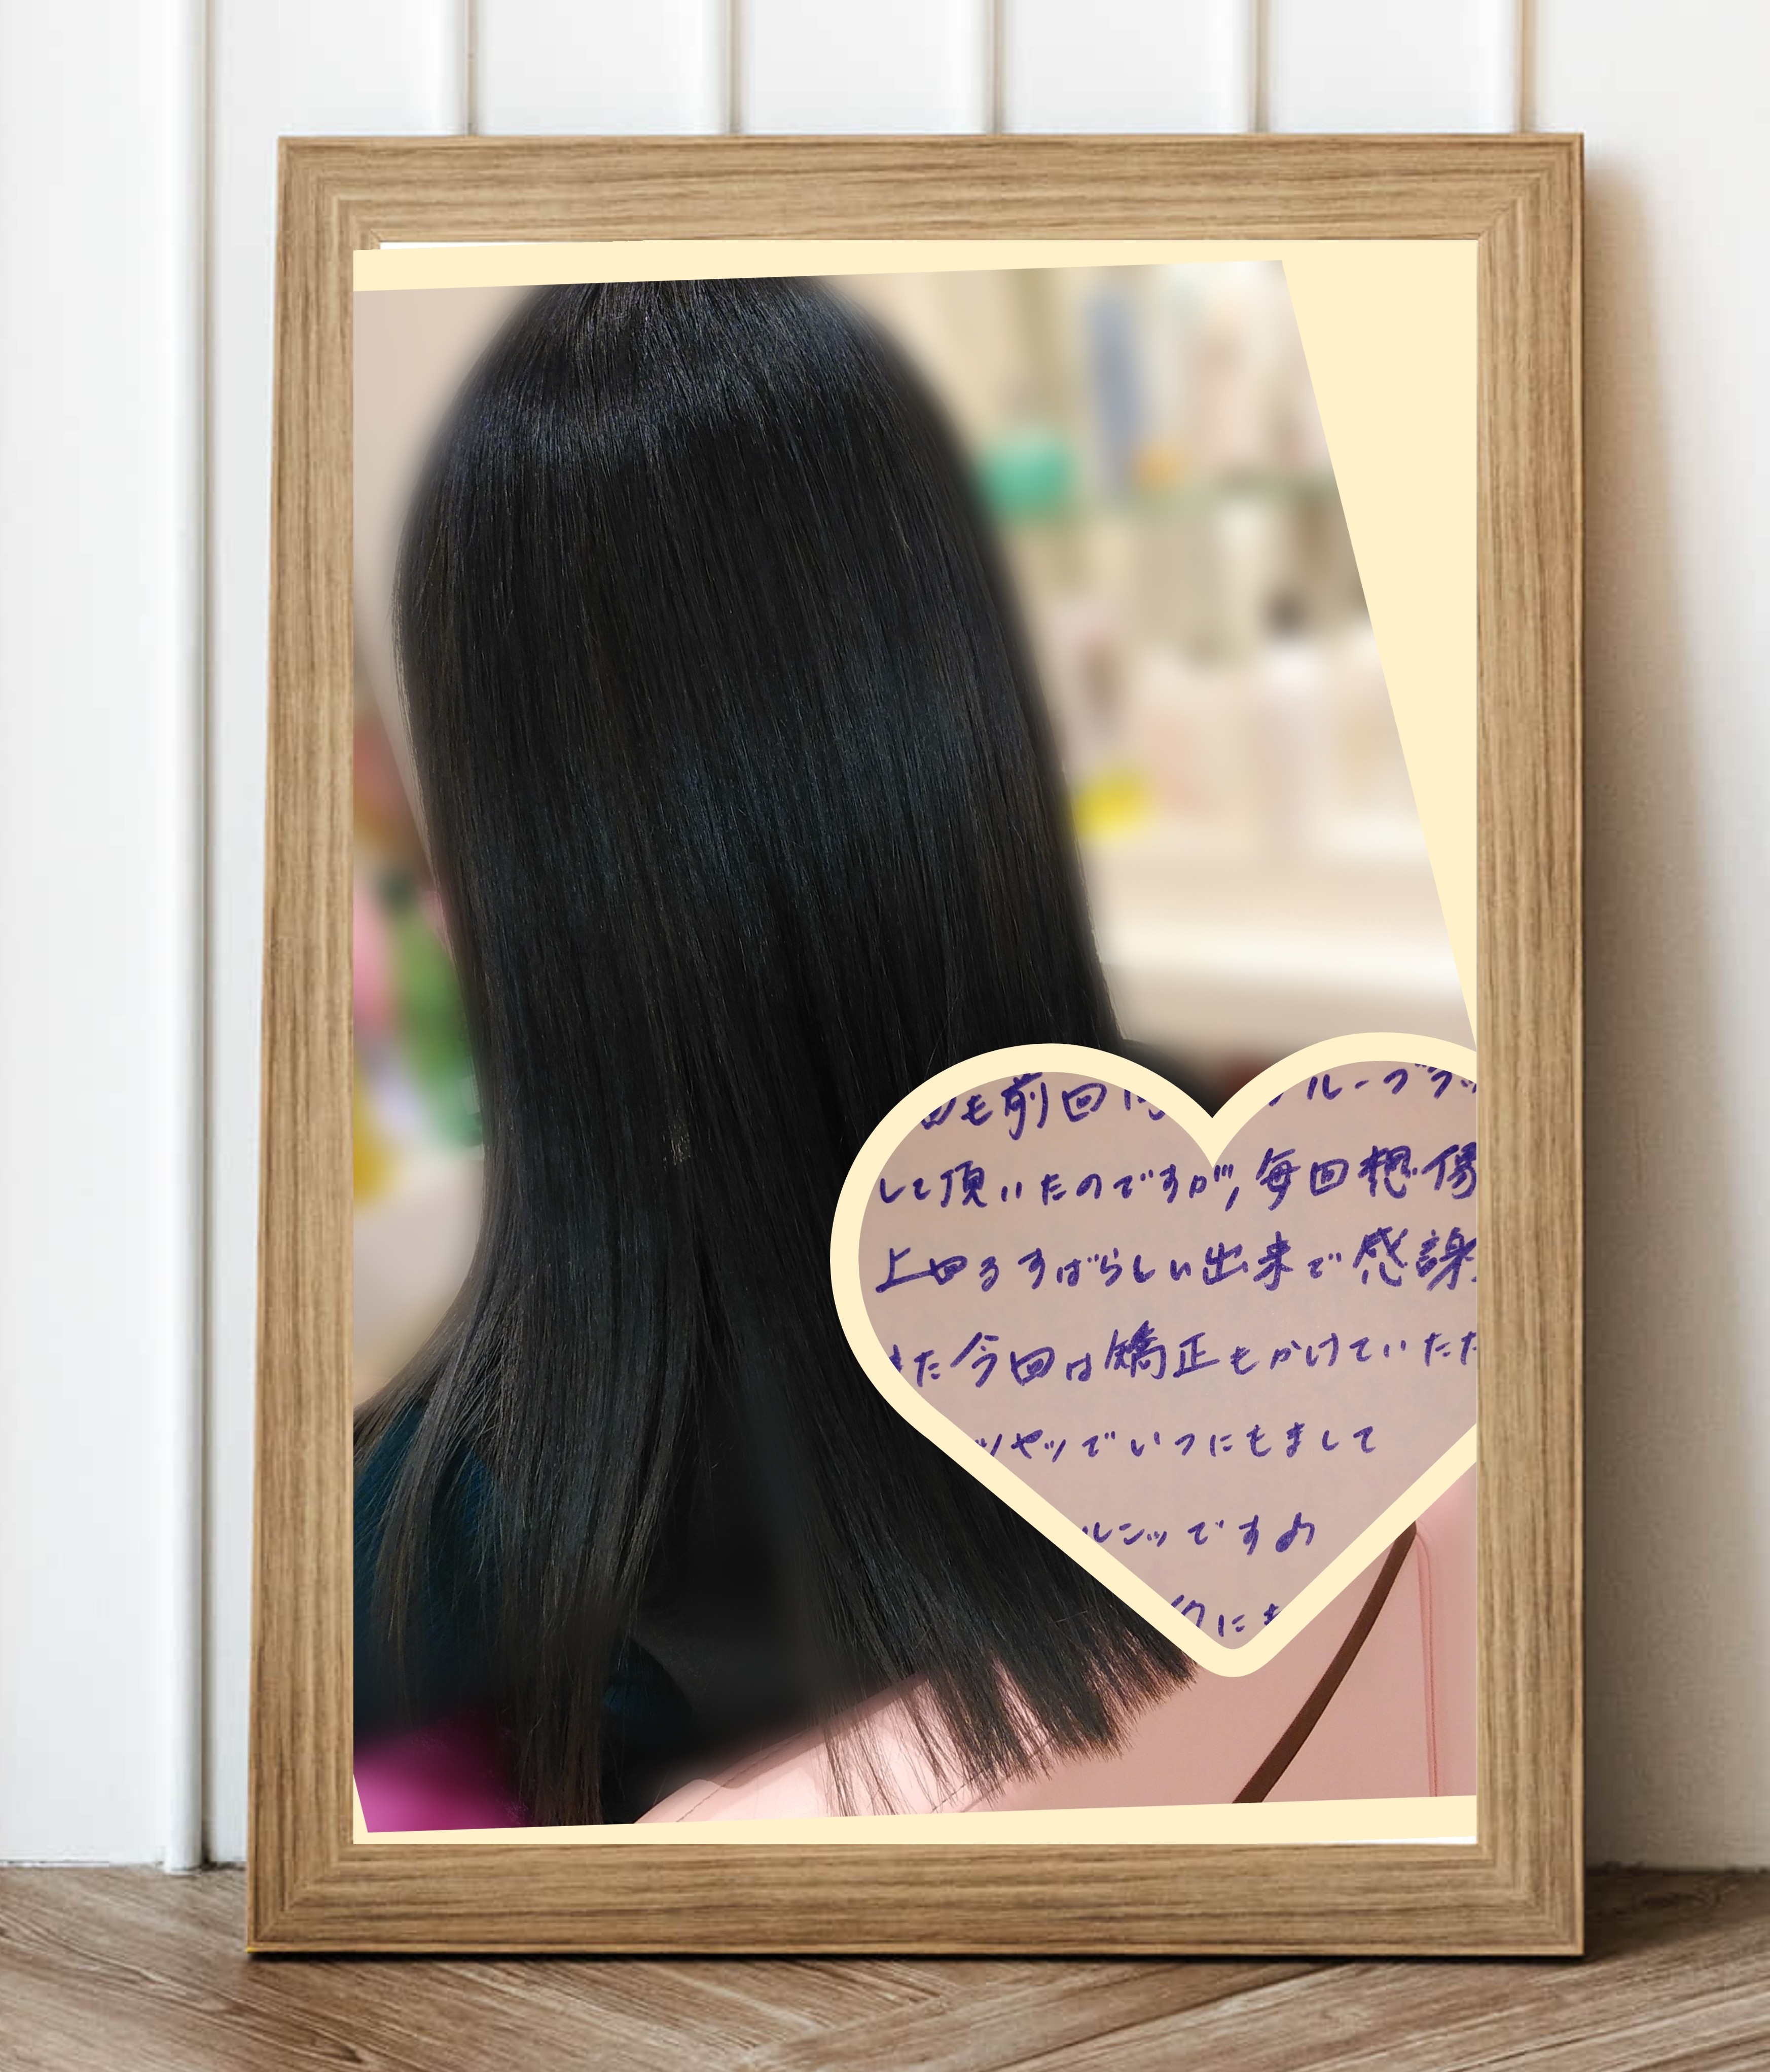 も前回 ルーブラ
して頂いたのですが、毎回想像
上回るすばらしい出来で感謝
また今回は矯正もかけていただ
ツヤツでいつにもまして
ルンッですよ
にも